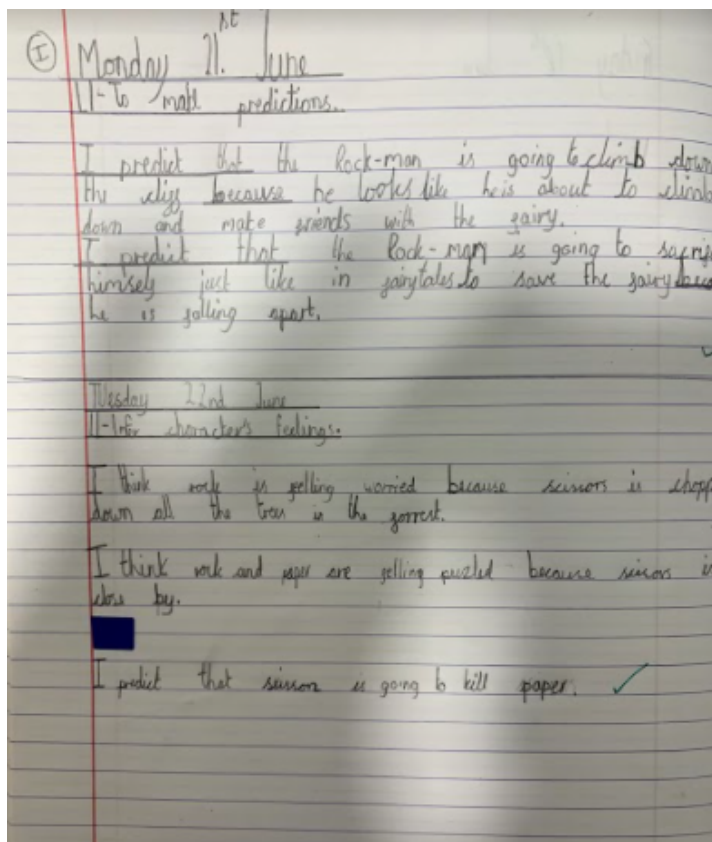 I
Monday 21.st June
LI- To make predictions.
I predict that the Rock-man is going to climb down
the clify because he looks like he is about to climb
down and make friends with the fairy.
I predict that the Rock-man is going to sacrifi
himself just like in fairytales to save the fairy beca
he is falling apart.
Tuesday 22nd June
LI-Infer character's feelings.
I think rock is felling worried because scissors is chopp
down all the trees in the forrest.
I think rock and paper are felling puzled because scissors is
close by.
I predict that scissors is going to kill paper.